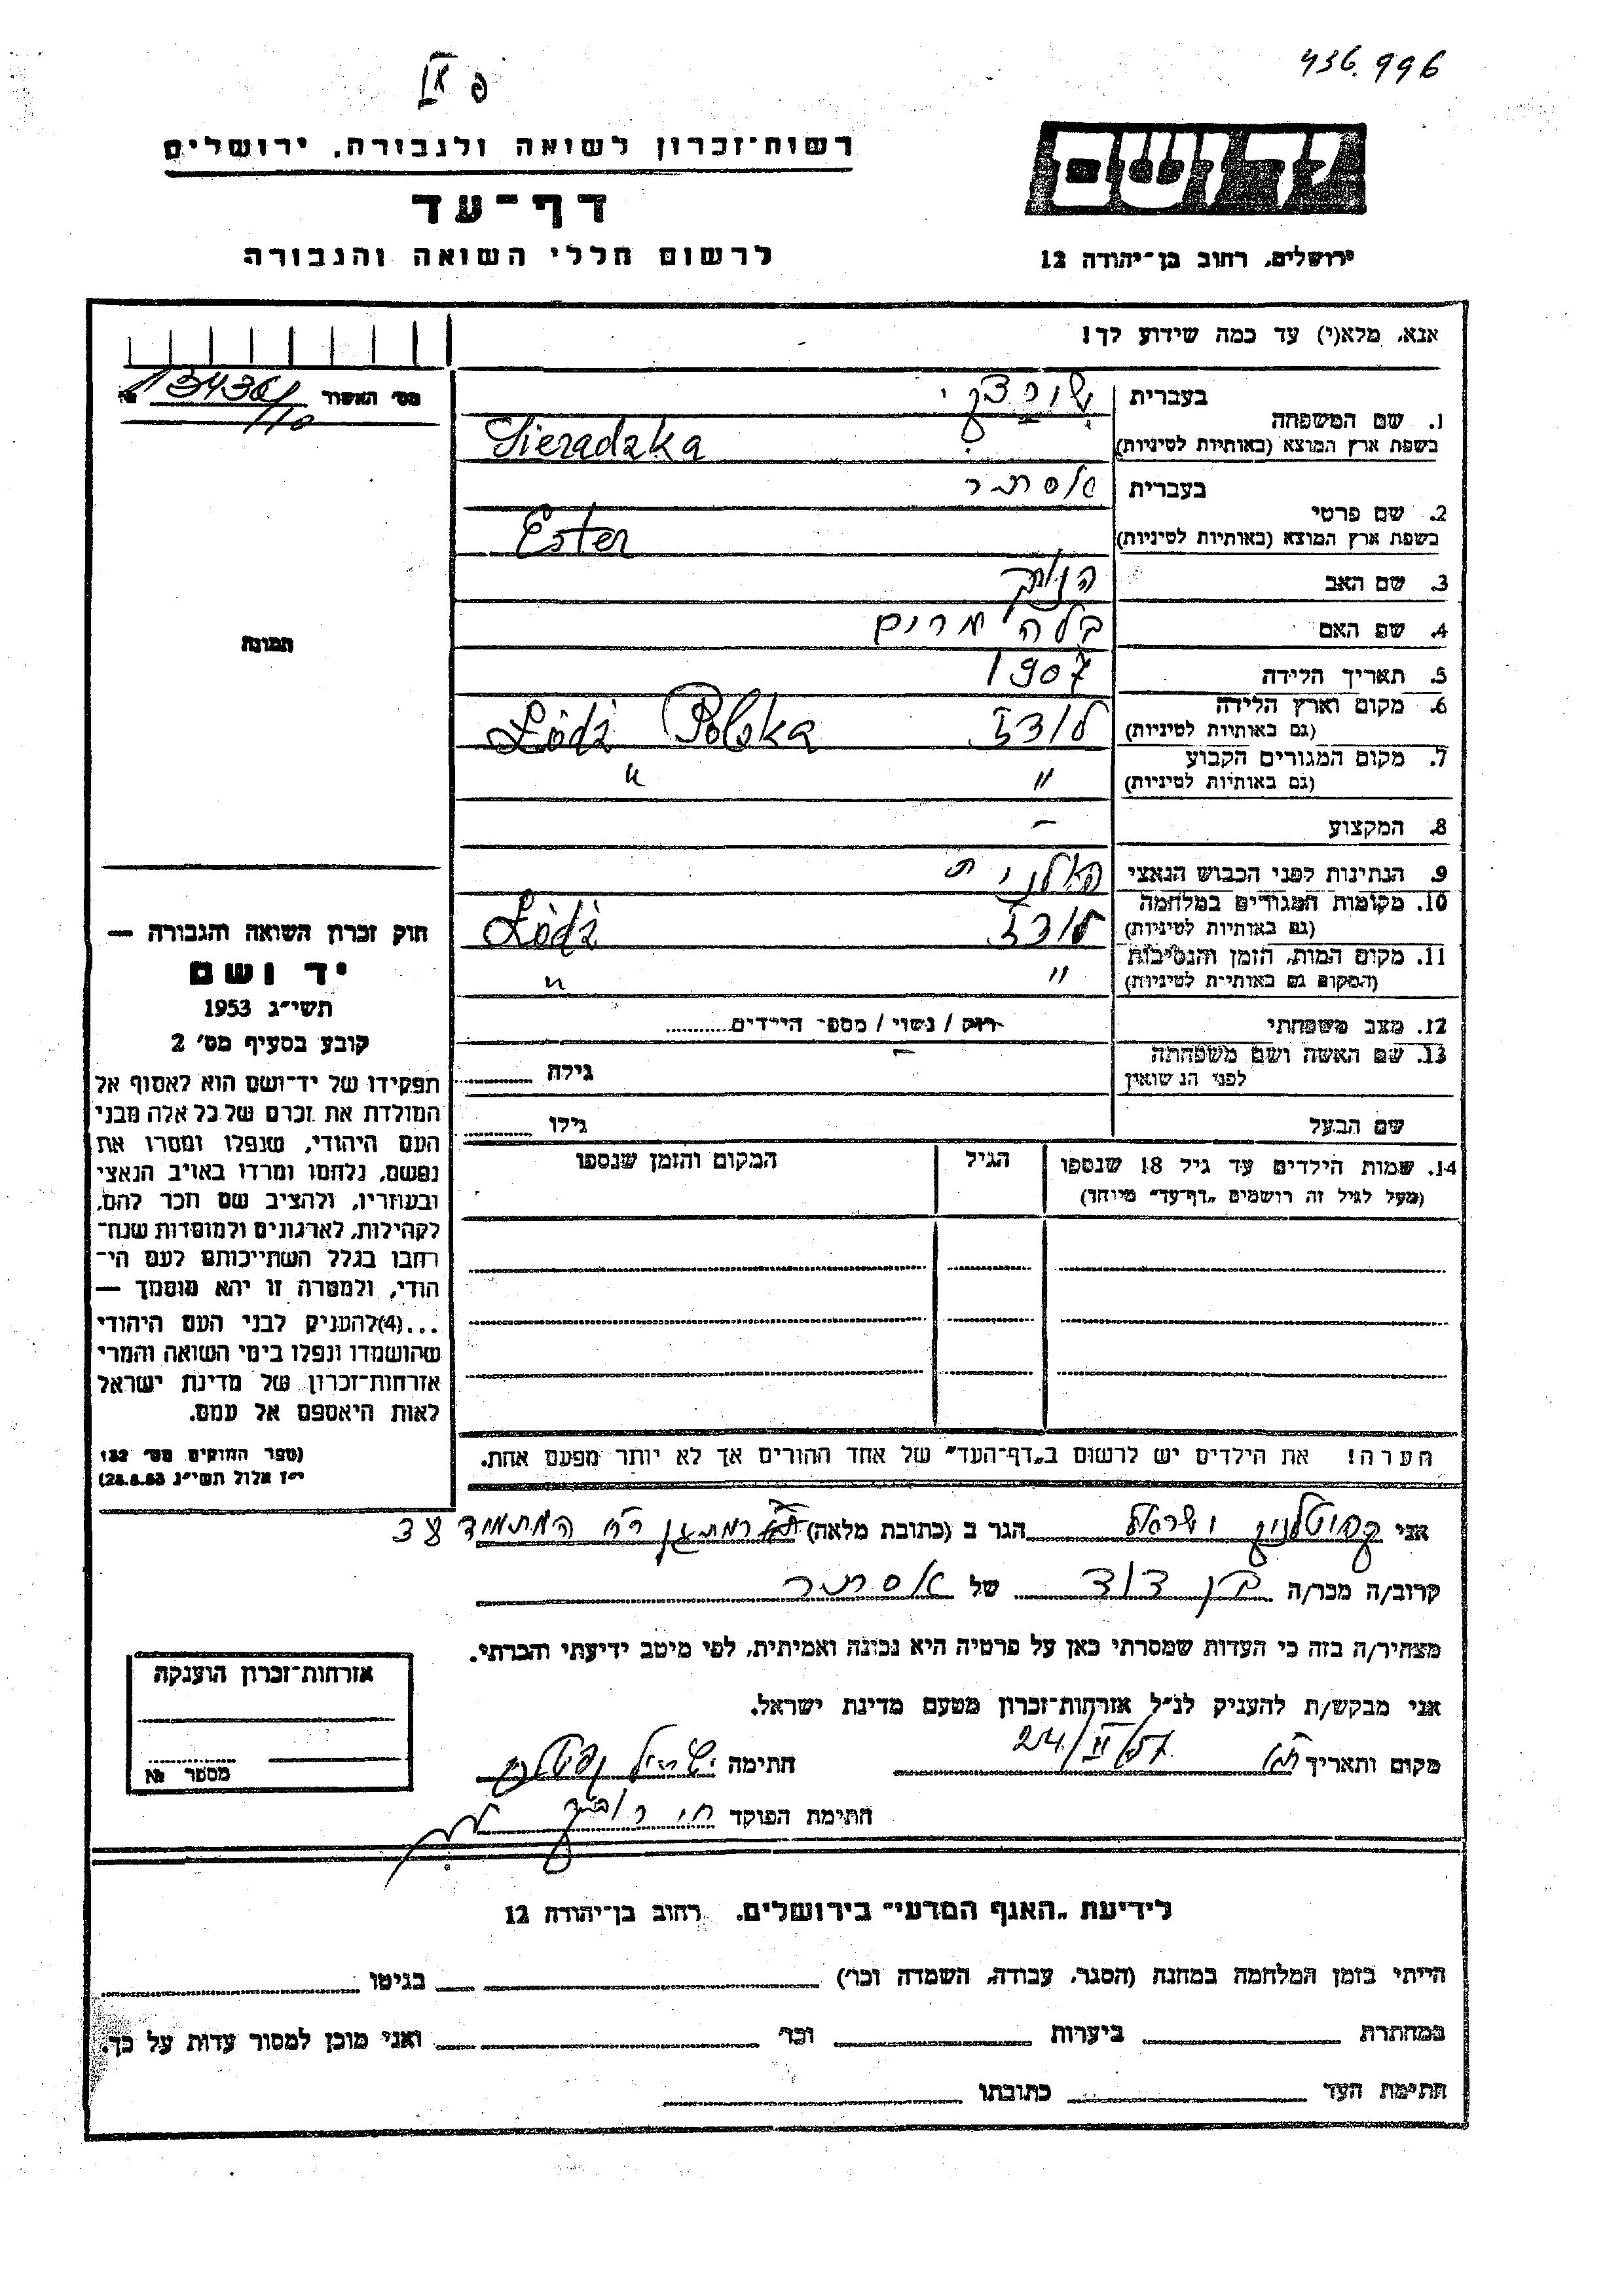 436.996
רשות־זכרון לשואה ולגבורה, ירושלים
יד ושם
דף־עד
ירושלים, רחוב בן־יהודה 12
לרשום חללי השואה והגבורה
אנא, מלא(י) עד כמה שידוע לך!
מס׳ האשור №
תמונה
1. שם המשפחה
בעברית
בשפת ארץ המוצא (באותיות לטיניות) Sieradzka
2. שם פרטי
בעברית אסתר
בשפת ארץ המוצא (באותיות לטיניות) Ester
3. שם האב
4. שם האם בלה מרים
5. תאריך הלידה 1907
6. מקום וארץ הלידה
(גם באותיות לטיניות) לודז Łódź Polska
7. מקום המגורים הקבוע
(גם באותיות לטיניות) " "
8. המקצוע —
9. הנתינות לפני הכבוש הנאצי פולנית
10. מקומות המגורים במלחמה
(גם באותיות לטיניות) לודז Łódź
11. מקום המות, הזמן והנסיבות
(המקום גם באותיות לטיניות) " "
12. מצב משפחתי רווק / נשוי / מספר הילדים
13. שם האשה ושם משפחתה
לפני הנשואין — גילה
שם הבעל גילו
14. שמות הילדים עד גיל 18 שנספו הגיל המקום והזמן שנספו
(מעל לגיל זה רושמים „דף־עד” מיוחד)
הערה! את הילדים יש לרשום ב„דף־העד” של אחד ההורים אך לא יותר מפעם אחת.
חוק זכרון השואה והגבורה —
יד ושם
תשי״ג 1953
קובע בסעיף מס׳ 2
תפקידו של יד־ושם הוא לאסוף אל
המולדת את זכרם של כל אלה מבני
העם היהודי, שנפלו ומסרו את
נפשם, נלחמו ומרדו באויב הנאצי
ובעוזריו, ולהציב שם וזכר להם,
לקהילות, לארגונים ולמוסדות שנח־
רבו בגלל השתייכותם לעם הי־
הודי, ולמטרה זו יהא מוסמך —
...(4)להעניק לבני העם היהודי
שהושמדו ונפלו בימי השואה והמרי
אזרחות־זכרון של מדינת ישראל
לאות היאספם אל עמם.
(ספר החוקים מס׳ 132
י״ז אלול תשי״ג 28.8.53)
אני ישראל הגר ב (כתובת מלאה) רמת גן רח׳
קרוב/ה מכר/ה בן דוד של אסתר
מצהיר/ה בזה כי העדות שמסרתי כאן על פרטיה היא נכונה ואמיתית, לפי מיטב ידיעתי והכרתי.
אני מבקש/ת להעניק לנ״ל אזרחות־זכרון מטעם מדינת ישראל.
מקום ותאריך 24/II/57 חתימה
חתימת הפוקד
אזרחות־זכרון הוענקה
מספר №
לידיעת „האגף המדעי” בירושלים, רחוב בן־יהודה 12
הייתי בזמן המלחמה במחנה (הסגר, עבודה, השמדה וכר׳) בגיטו
במחתרת ביערות וכר׳ ואני מוכן למסור עדות על כך.
חתימת העד כתובתו